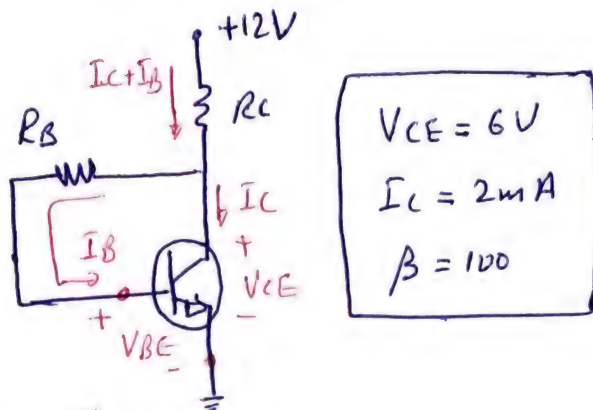 +12V
IC+IB
RC
RB
IC
IB
+
VCE
-
+
VBE
-
VCE = 6V
IC = 2mA
β = 100